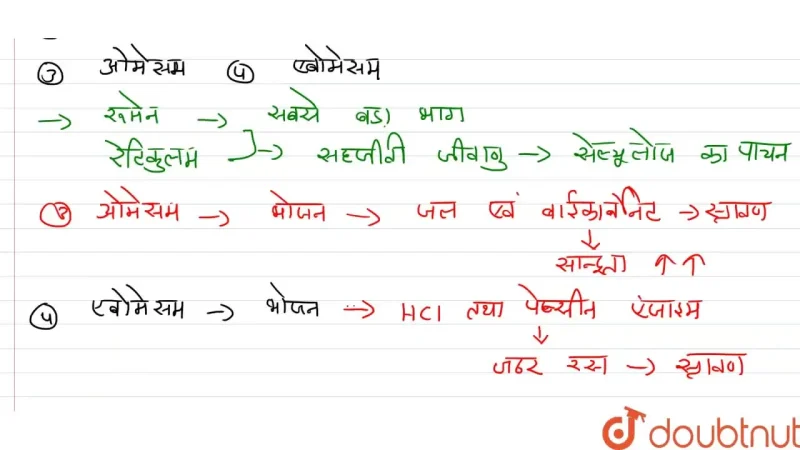 ③ ओमेसम ④ एबोमेसम
→ रूमेन → सबसे बड़ा भाग
रेटिकुलम ] → सहजीवी जीवाणु → सेल्यूलोज का पाचन
③ ओमेसम → भोजन → जल एवं बाईकार्बोनेट → स्रावण
↓
सान्द्रता ↑ ↑
④ एबोमेसम → भोजन → HCl तथा पेप्सीन एंजाइम
↓
जठर रस → स्रावण
doubtnut